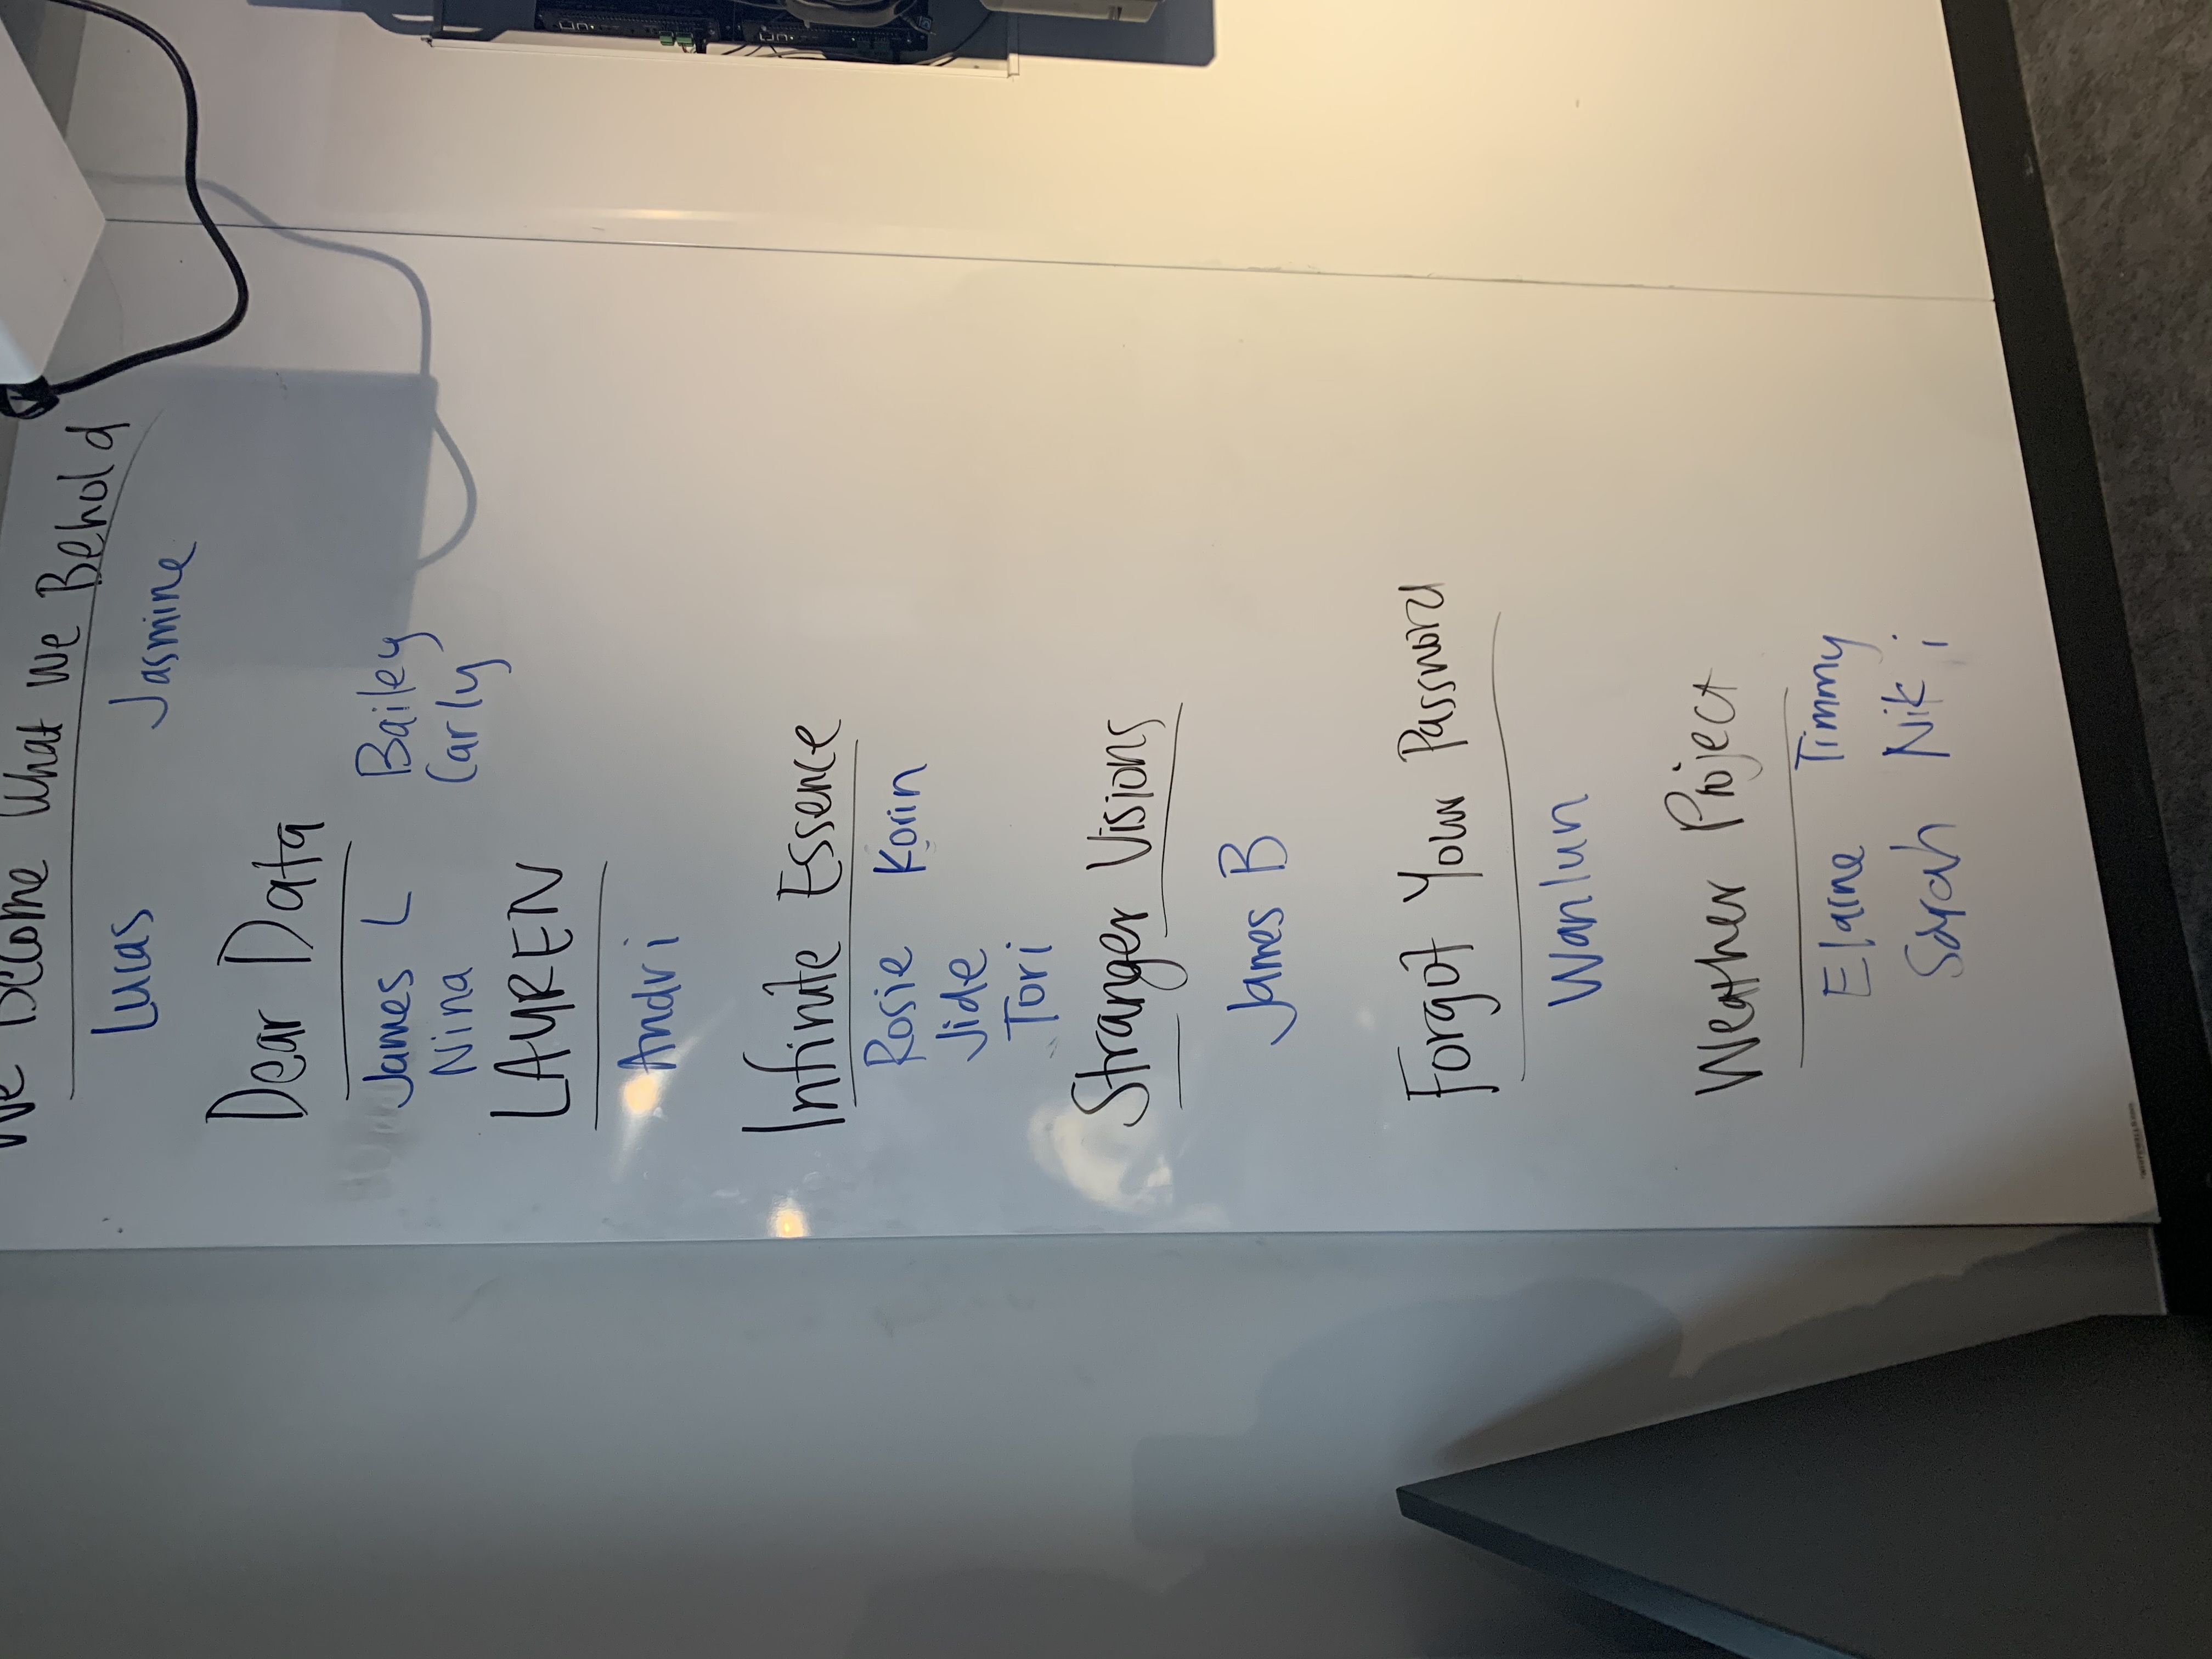 We Become What We Behold
Lucas Jasmine
Dear Data
James L Bailey
Nina Carly
LAUREN
Andri
Infinite Essence
Rosie Korin
Jide
Tori
Stranger Visions
James B
Forgot Your Password
Wanlun
Weather Project
Elaine Timmy
Sarah Niki